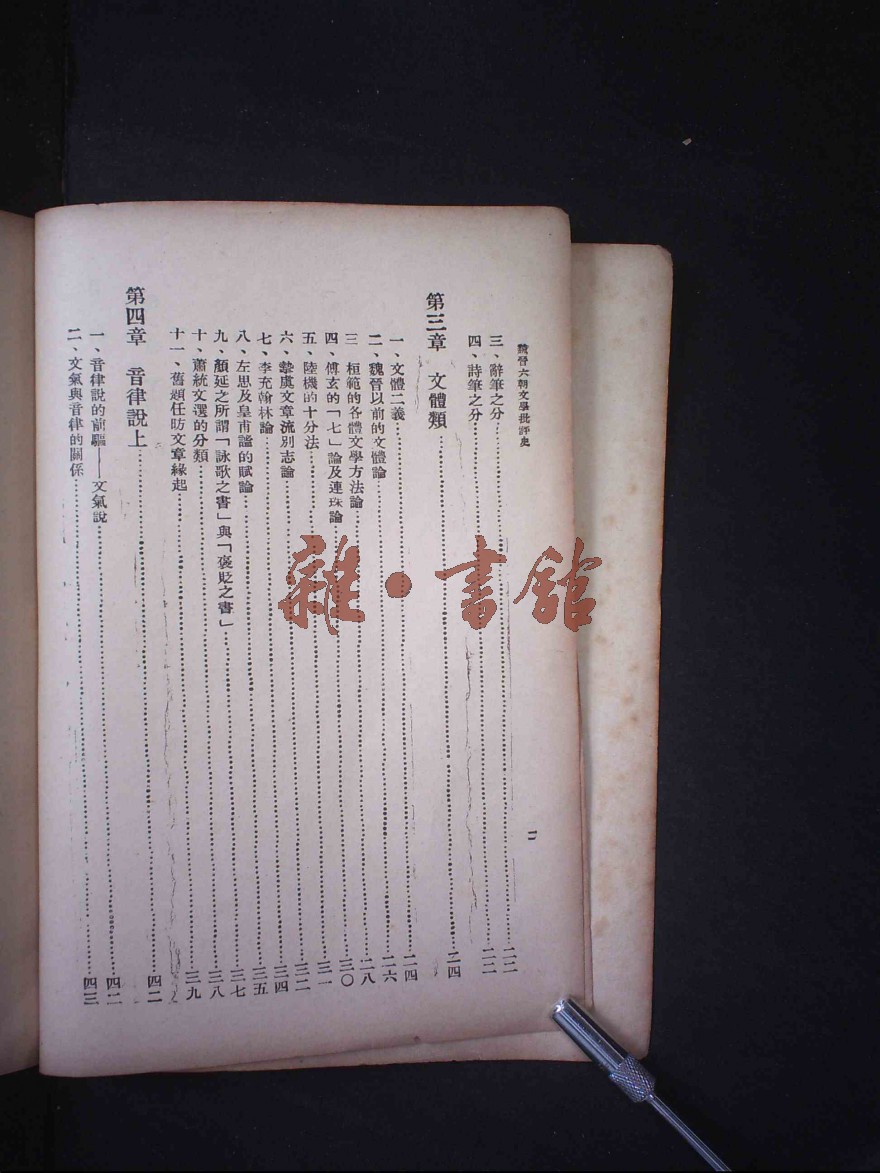 魏晉六朝文學批評史
二
三、辭筆之分……二二
四、詩筆之分……二二
第三章　文體類……二四
一、文體二義……二四
二、魏晉以前的文體論……二六
三　桓範的各體文學方法論……二八
四、傅玄的「七」論及連珠論……三〇
五、陸機的十分法……三一
六、摯虞文章流別志論……三二
七、李充翰林論……三四
八、左思及皇甫謐的賦論……三五
九、顏延之所謂「詠歌之書」與「褒貶之書」……三七
十、蕭統文選的分類……三八
十一、舊題任昉文章緣起……三九
第四章　音律說上……四二
一、音律說的前驅——文氣說……四二
二、文氣與音律的關係……四三
雜·書館